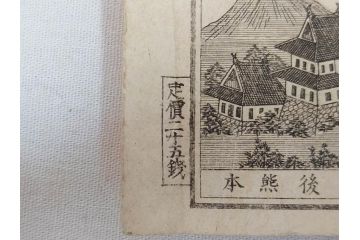 定價二十五錢
本熊後